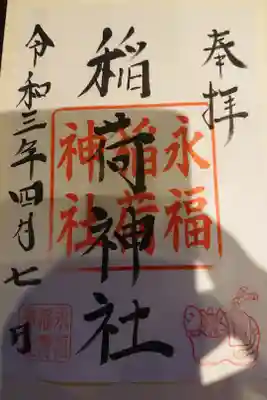 奉拝
永福
稲荷
神社
稲荷神社
令和三年四月七日